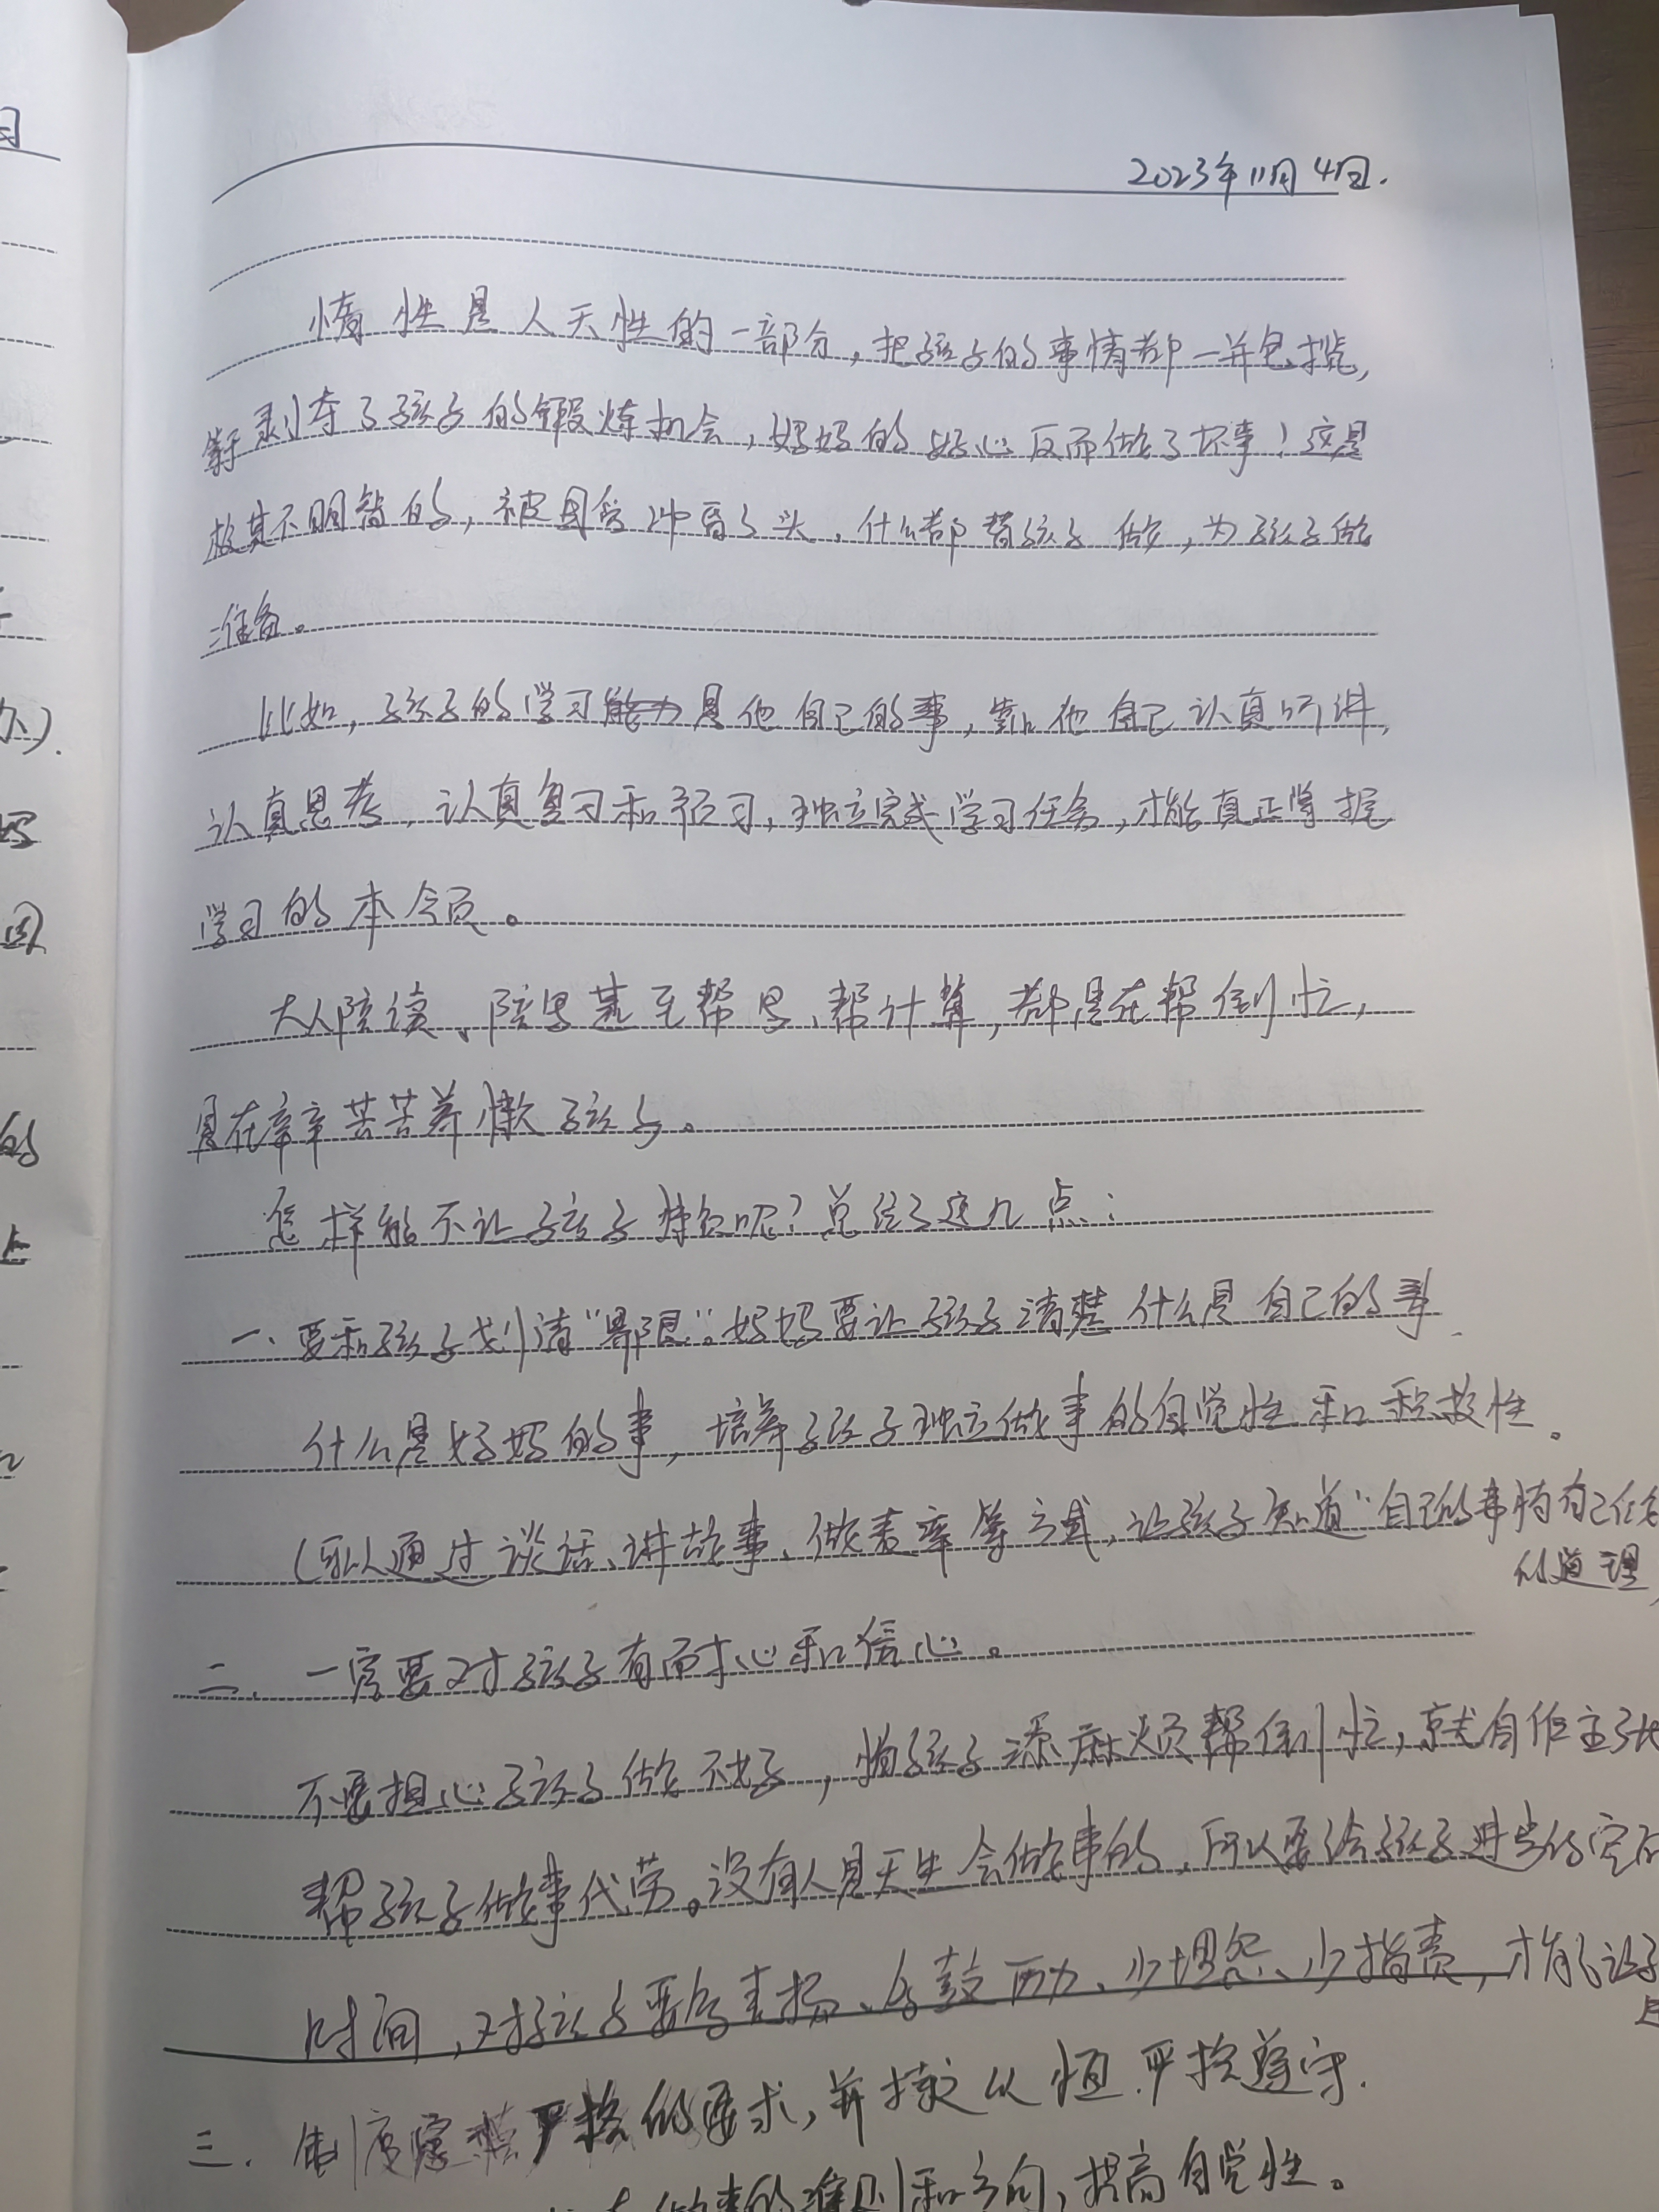 2023年11月4日.
惰性是人天性的一部分，把孩子的事情都一并包揽，
等于剥夺了孩子的锻炼机会，妈妈的好心反而做了坏事！这是
极其不明智的，被母爱冲昏了头，什么都替孩子做，为孩子做
准备。
比如，孩子的学习能力是他自己的事，靠他自己认真听讲，
认真思考，认真复习和预习，独立完成学习任务，才能真正掌握
学习的本领。
大人陪读、陪思甚至帮思、帮计算，都是在帮倒忙，
是在辛辛苦苦养懒孩子。
怎样能不让孩子懒惰呢？总结了这几点：
一、要和孩子划清“界限”。妈妈要让孩子清楚什么是自己的事.
什么是妈妈的事，培养孩子独立做事的自觉性和积极性。
(可以通过谈话、讲故事、做表率等方式，让孩子知道“自己的事情自己做
的道理
二、一定要对孩子有耐心和信心。
不要担心孩子做不好，怕孩子添麻烦帮倒忙，就自作主张
帮孩子做事代劳。没有人是天生会做事的，所以要给孩子进步的空间
时间，对孩子要多表扬、多鼓励、少埋怨、少指责，才能让
三、制度 严格的要求，并持之以恒.严格遵守.
做事的准则和方向，提高自觉性。
日
办).
妈
的
上